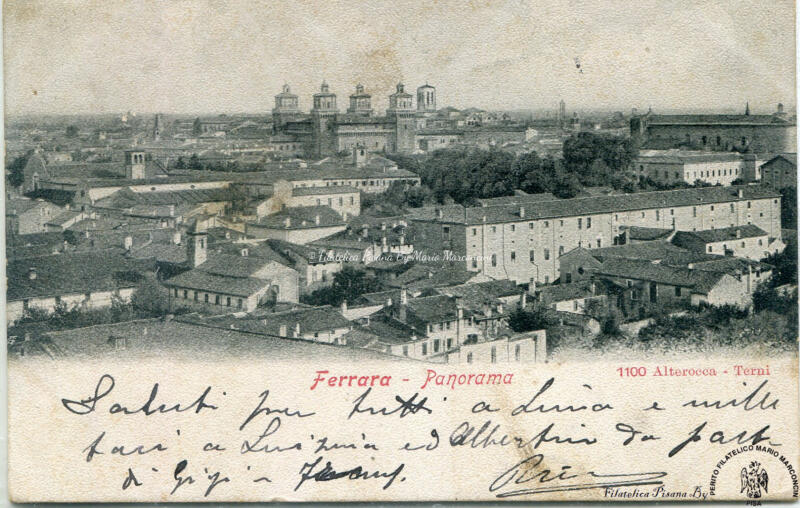 © Filatelica Pisana By Mario Marconcini
Ferrara - Panorama
1100 Alterocca - Terni
Saluti per tutti a Livia e mille
baci a Luisinia ed Albertino da parte
di Gigi
Filatelica Pisana By
PERITO FILATELICO MARIO MARCONCINI
PISA